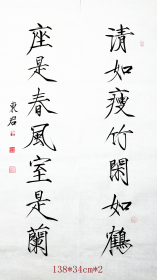 清如瘦竹閑如鶴
座是春風室是蘭
東君
138*34cm*2